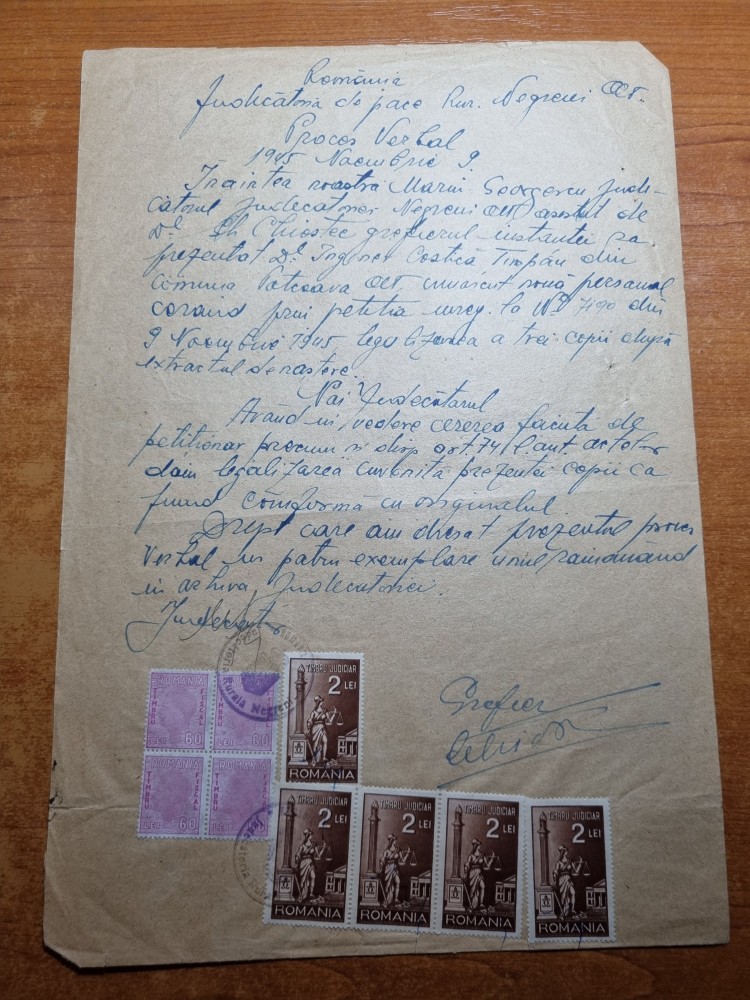 România
Judecătoria de pace Rur. Negreni Olt.
Proces Verbal
1945 Noembrie 9
Înaintea noastră Marin Georgescu Jude-
cătorul Judecătoriei Negreni Olt asistat de
Dl. Gh Chiostec grefierul instanței sa
prezentat Dl. Inginer Costică din
Comuna Potcoava Olt cunoscut nouă personal
cerând prin petitia inreg. la No 7190 din
9 Noembrie 1945 legalizarea a trei copii după
extractul de nastere.
Noi Judecătorul
Având in vedere cererea facuta de
petitionar precum si disp art 774 actelor
dăm legalizarea cuvenita prezentei copii ca
fiind conformă cu originalul.
Drept care am dresat prezentul proces
Verbal in patru exemplare unul ramanând
in arhiva Judecatoriei.
Judecator
Grefier
ROMANIA
TIMBRU FISCAL
LEI 60
ROMANIA
TIMBRU FISCAL
LEI 60
ROMANIA
TIMBRU FISCAL
LEI 60
ROMANIA
TIMBRU FISCAL
LEI 60
Rurală Negreni
TIMBRU JUDICIAR
2 LEI
ROMANIA
TIMBRU JUDICIAR
2 LEI
ROMANIA
TIMBRU JUDICIAR
2 LEI
ROMANIA
TIMBRU JUDICIAR
2 LEI
ROMANIA
TIMBRU JUDICIAR
2 LEI
ROMANIA